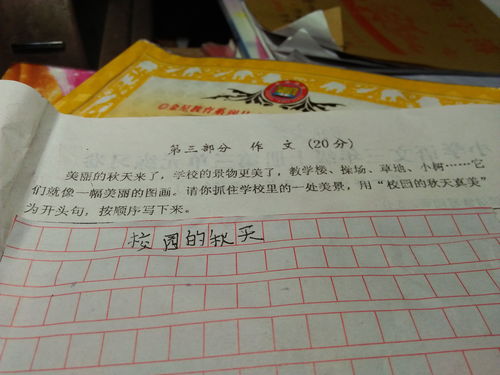 金星教育系列
第三部分 作 文 (20分)
美丽的秋天来了，学校的景物更美了，教学楼、操场、草地、小树……它
们就像一幅美丽的图画。请你抓住学校里的一处美景，用“校园的秋天真美”
为开头句，按顺序写下来。
校园的秋天